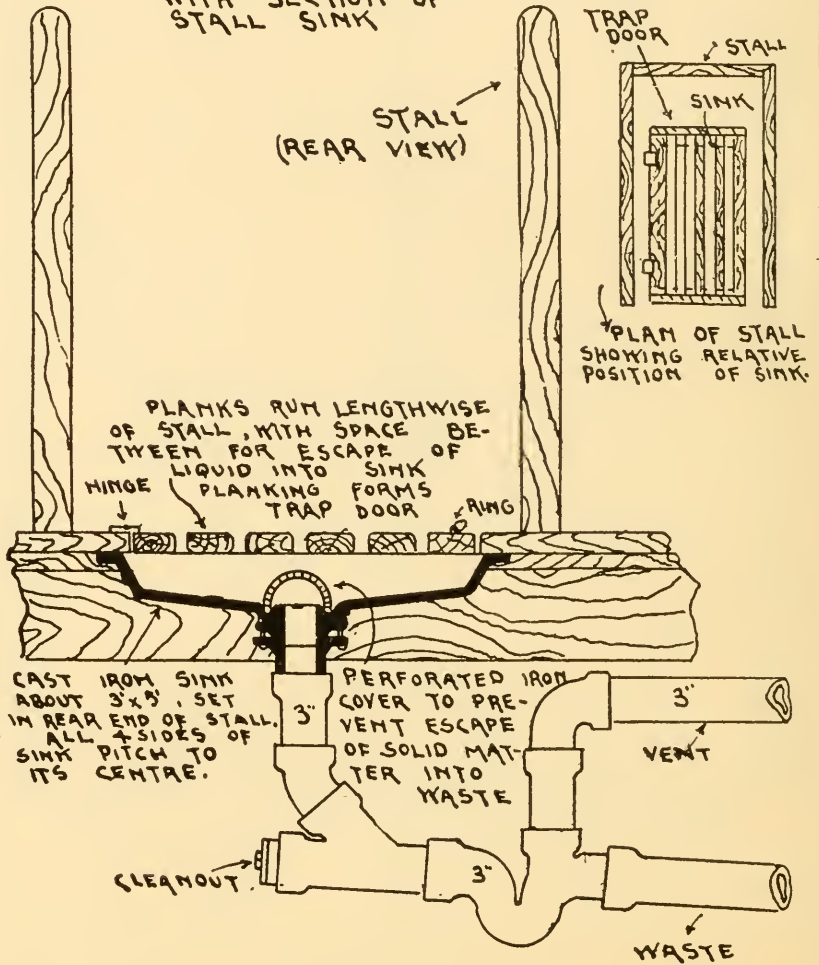 WITH SECTION OF
STALL SINK
TRAP
DOOR
STALL
SINK
STALL
(REAR VIEW)
PLAN OF STALL
SHOWING RELATIVE
POSITION OF SINK.
PLANKS RUN LENGTHWISE
OF STALL, WITH SPACE BE-
TWEEN FOR ESCAPE OF
LIQUID INTO SINK
HINGE PLANKING FORMS
TRAP DOOR RING
CAST IRON SINK
ABOUT 3'x5', SET
IN REAR END OF STALL.
ALL 4 SIDES OF
SINK PITCH TO
ITS CENTRE.
3"
PERFORATED IRON
COVER TO PRE-
VENT ESCAPE
OF SOLID MAT-
TER INTO
WASTE
3"
VENT
CLEANOUT
3"
WASTE